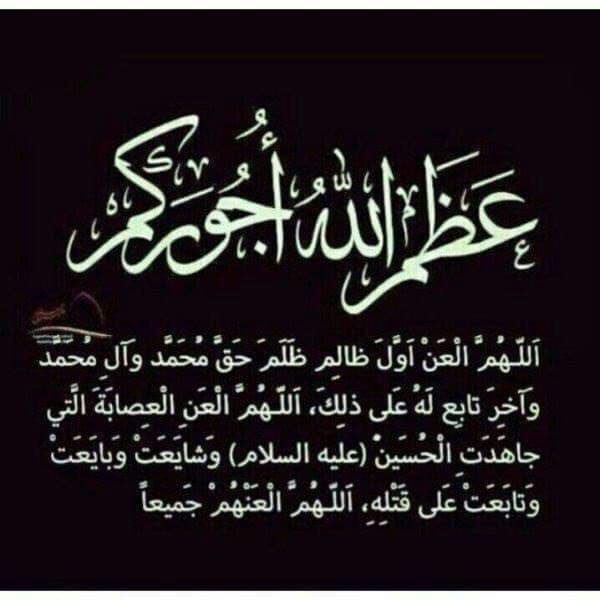 عَظَّمَ اللهُ أُجُورَكُم
اَللّهُمَّ الْعَنْ اَوَّلَ ظالِمٍ ظَلَمَ حَقَّ مُحَمَّد وَآلِ مُحَمَّد
وَآخِرَ تابِعٍ لَهُ عَلى ذلِكَ، اَللّهُمَّ الْعَنِ الْعِصابَةَ الَّتي
جاهَدَتِ الْحُسَيْنَ (عليه السلام) وَشايَعَتْ وَبايَعَتْ
وَتابَعَتْ عَلى قَتْلِهِ، اَللّهُمَّ الْعَنْهُمْ جَميعاً